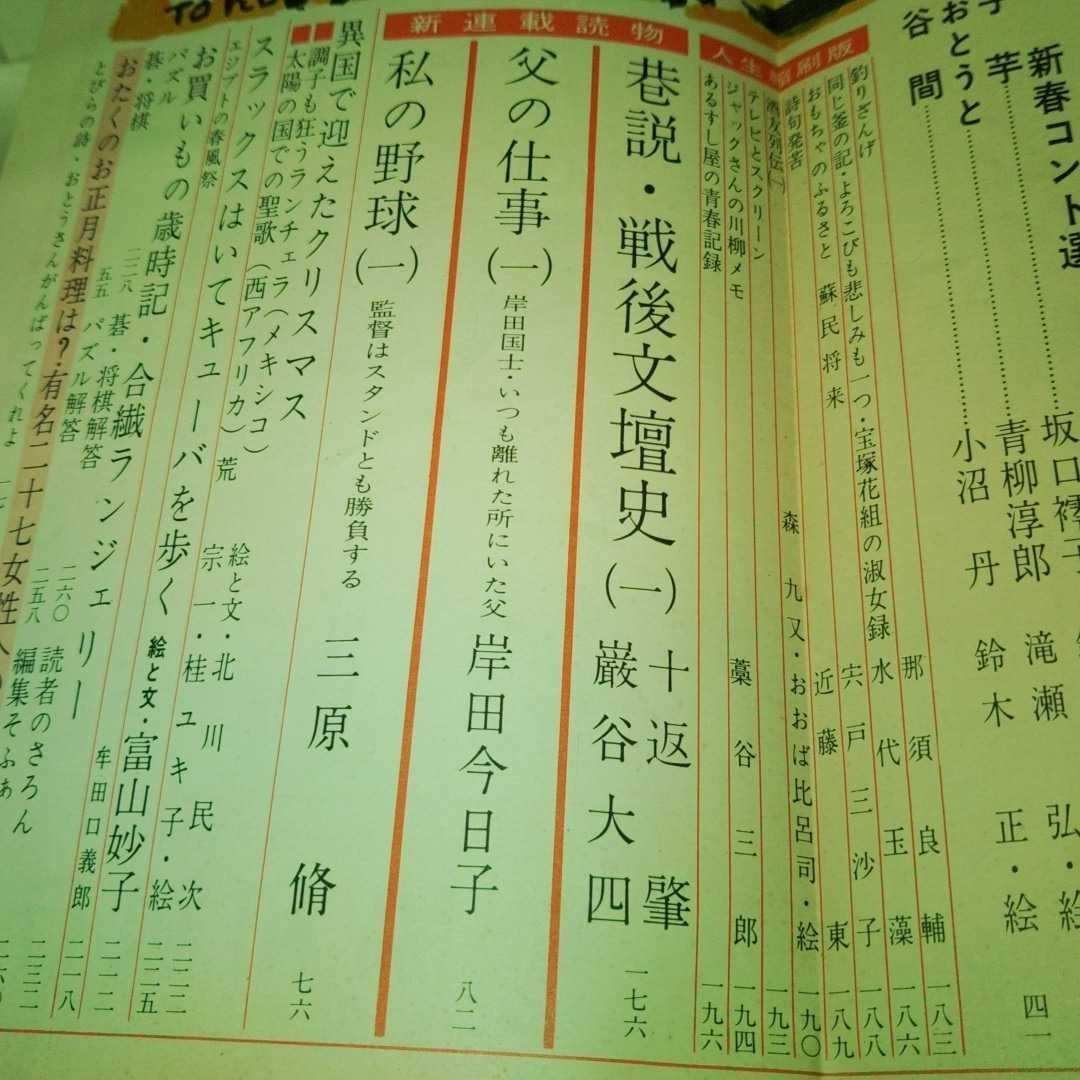 新春コント選
芋
坂口䙥子
青柳淳郎
おとうと
谷間
小沼丹
滝瀬弘・絵
鈴木正・絵
四一
人生縮刷版
釣りざんげ
那須良輔
一八三
同じ釜の記・よろこびも悲しみも一つ・宝塚花組の淑女録
水代玉藻
一八六
おもちゃのふるさと
蘇民将来
宍戸三沙子
一八八
詩句発苦
近藤東
一八九
酒友列伝(一)
森九又・おおば比呂司・絵
一九〇
テレビとスクリーン
一九三
ジャックさんの川柳メモ
藁谷三郎
一九四
あるすし屋の青春記録
一九六
新連載読物
巷説・戦後文壇史(一)
十返肇
巌谷大四
一七六
父の仕事(一)
岸田国士・いつも離れた所にいた父
岸田今日子
八二
私の野球(一)
監督はスタンドとも勝負する
三原脩
七六
異国で迎えたクリスマス
調子も狂うランチェラ(メキシコ)
太陽の国での聖歌(西アフリカ)
絵と文・北川民次
荒宗一・桂ユキ子・絵
二二二
スラックスはいてキューバを歩く
絵と文・富山妙子
二二五
エジプトの春風祭
牟田口義郎
お買いもの歳時記・合繊ランジェリー
二一二
パズル
二二八
碁・将棋
五五
碁・将棋解答
二六〇
パズル解答
二五八
読者のさろん
編集そふぁ
二三二
おたくのお正月料理は?・有名二十七女性
とびらの詩・おとうさんがんばってくれよ